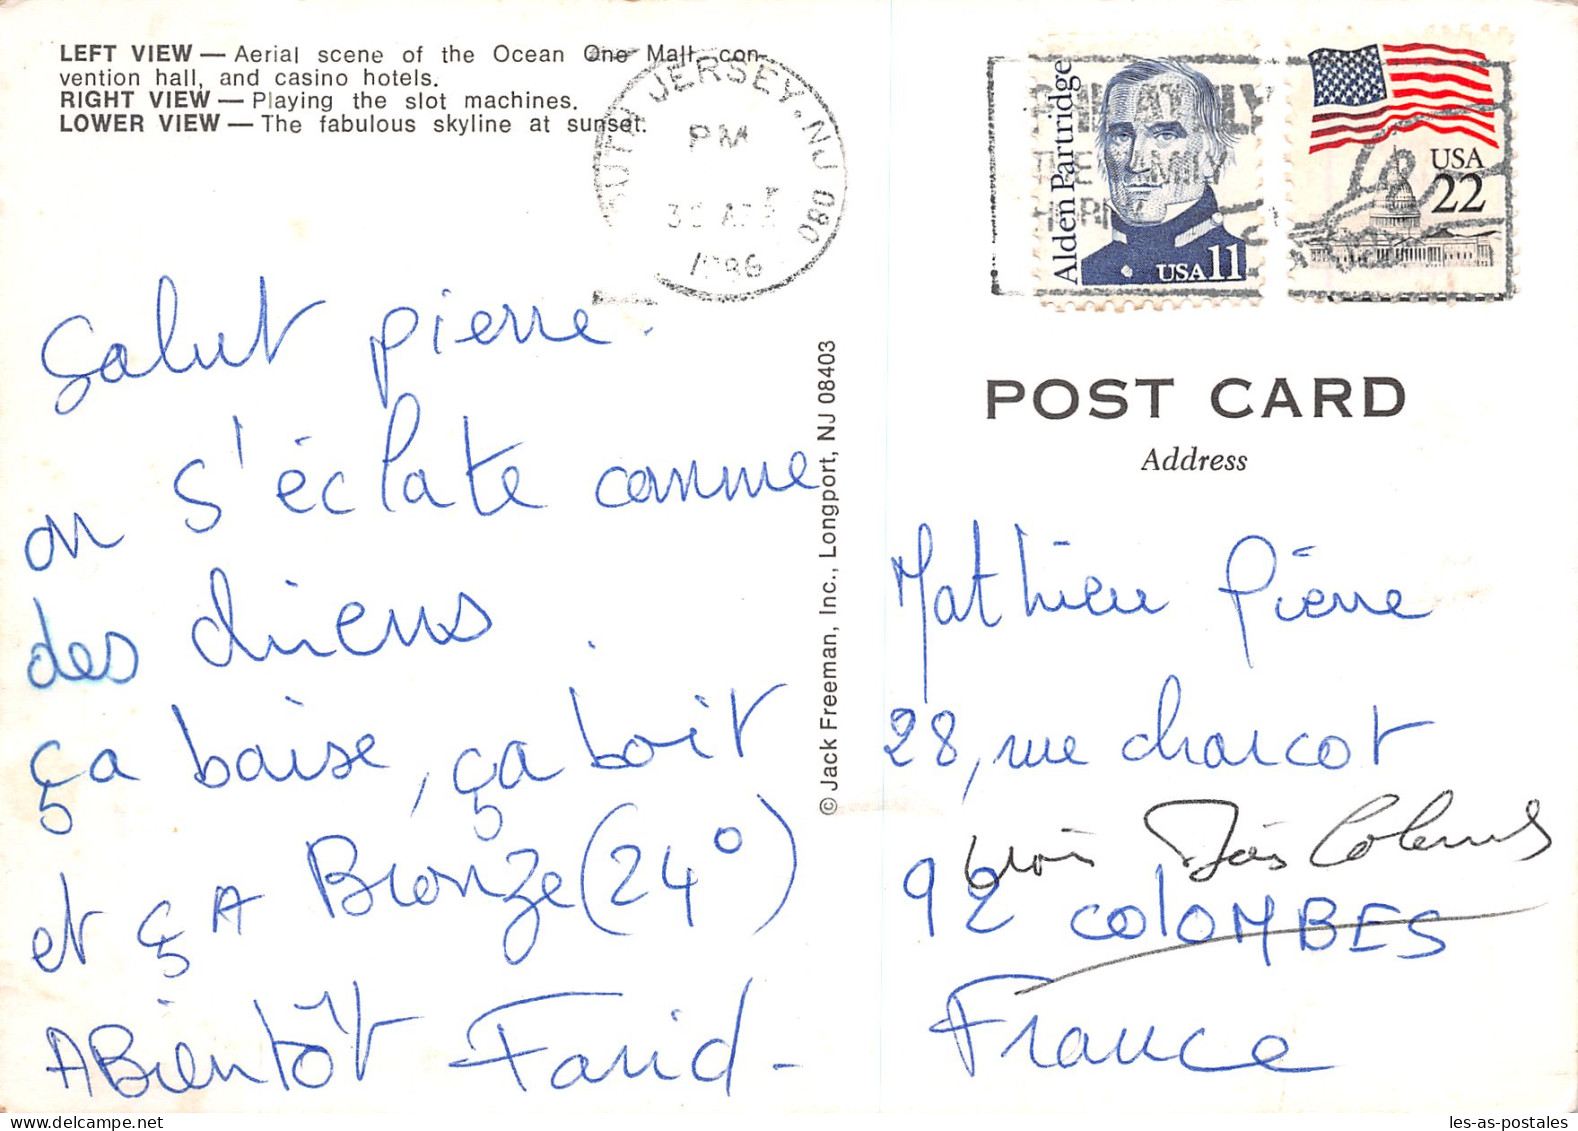 LEFT VIEW — Aerial scene of the Ocean One Mall, con-
vention hall, and casino hotels.
RIGHT VIEW — Playing the slot machines.
LOWER VIEW — The fabulous skyline at sunset.
JERSEY, NJ 080
PM
1986
Alden Partridge
USA 11
USA
22
POST CARD
Address
© Jack Freeman, Inc., Longport, NJ 08403
Salut pierre.
on s'éclate comme
des chiens.
ça baise, ça boit
et çA Bronze (24°)
ABientôt Farid -
Mathieu Pierre
28, rue charcot
92 COlOMBES
France
les-as-postales